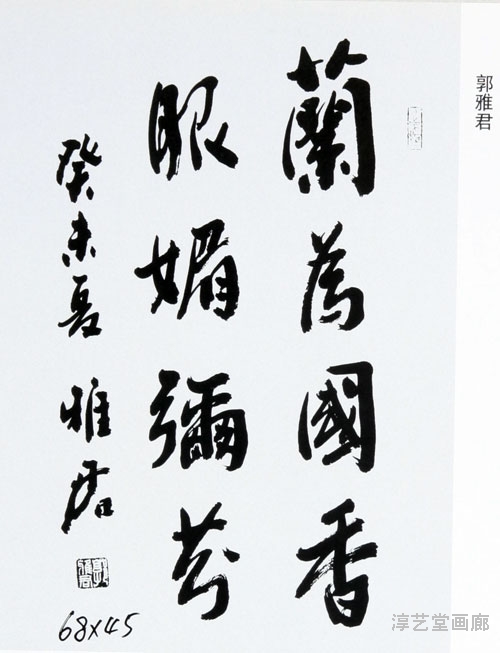 郭雅君
蘭為國香
服媚彌芬
癸未夏 雅君
68x45
淳艺堂画廊